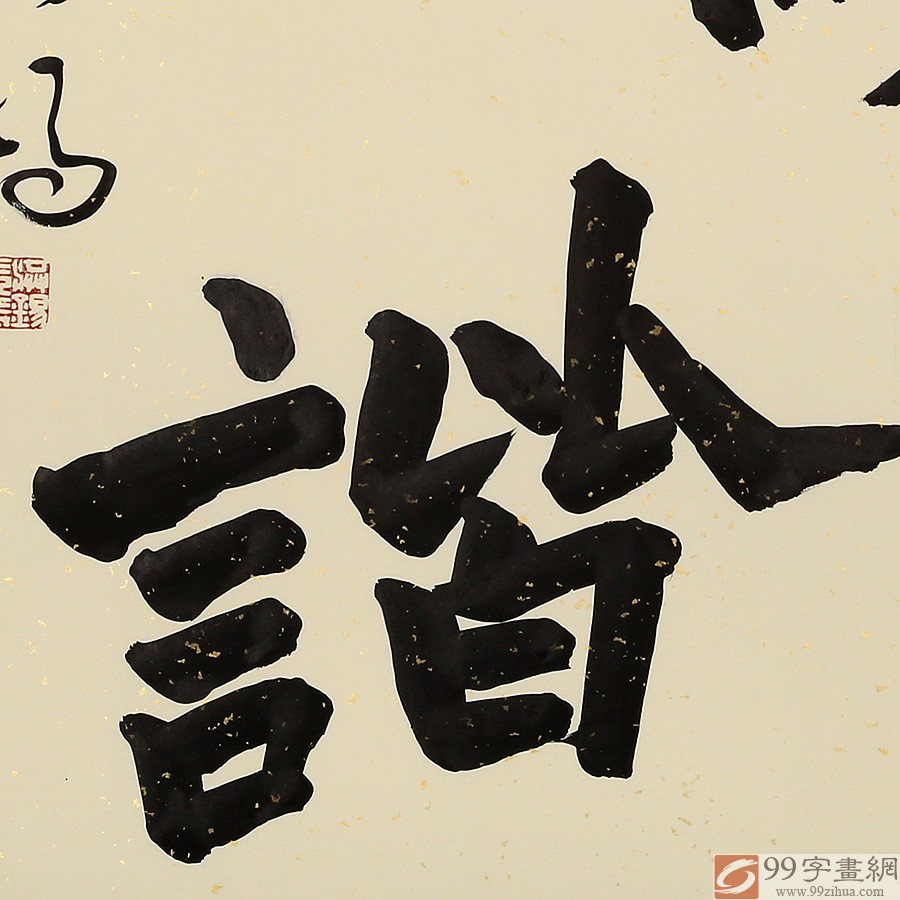 諧
99字畫網
www.99zihua.com